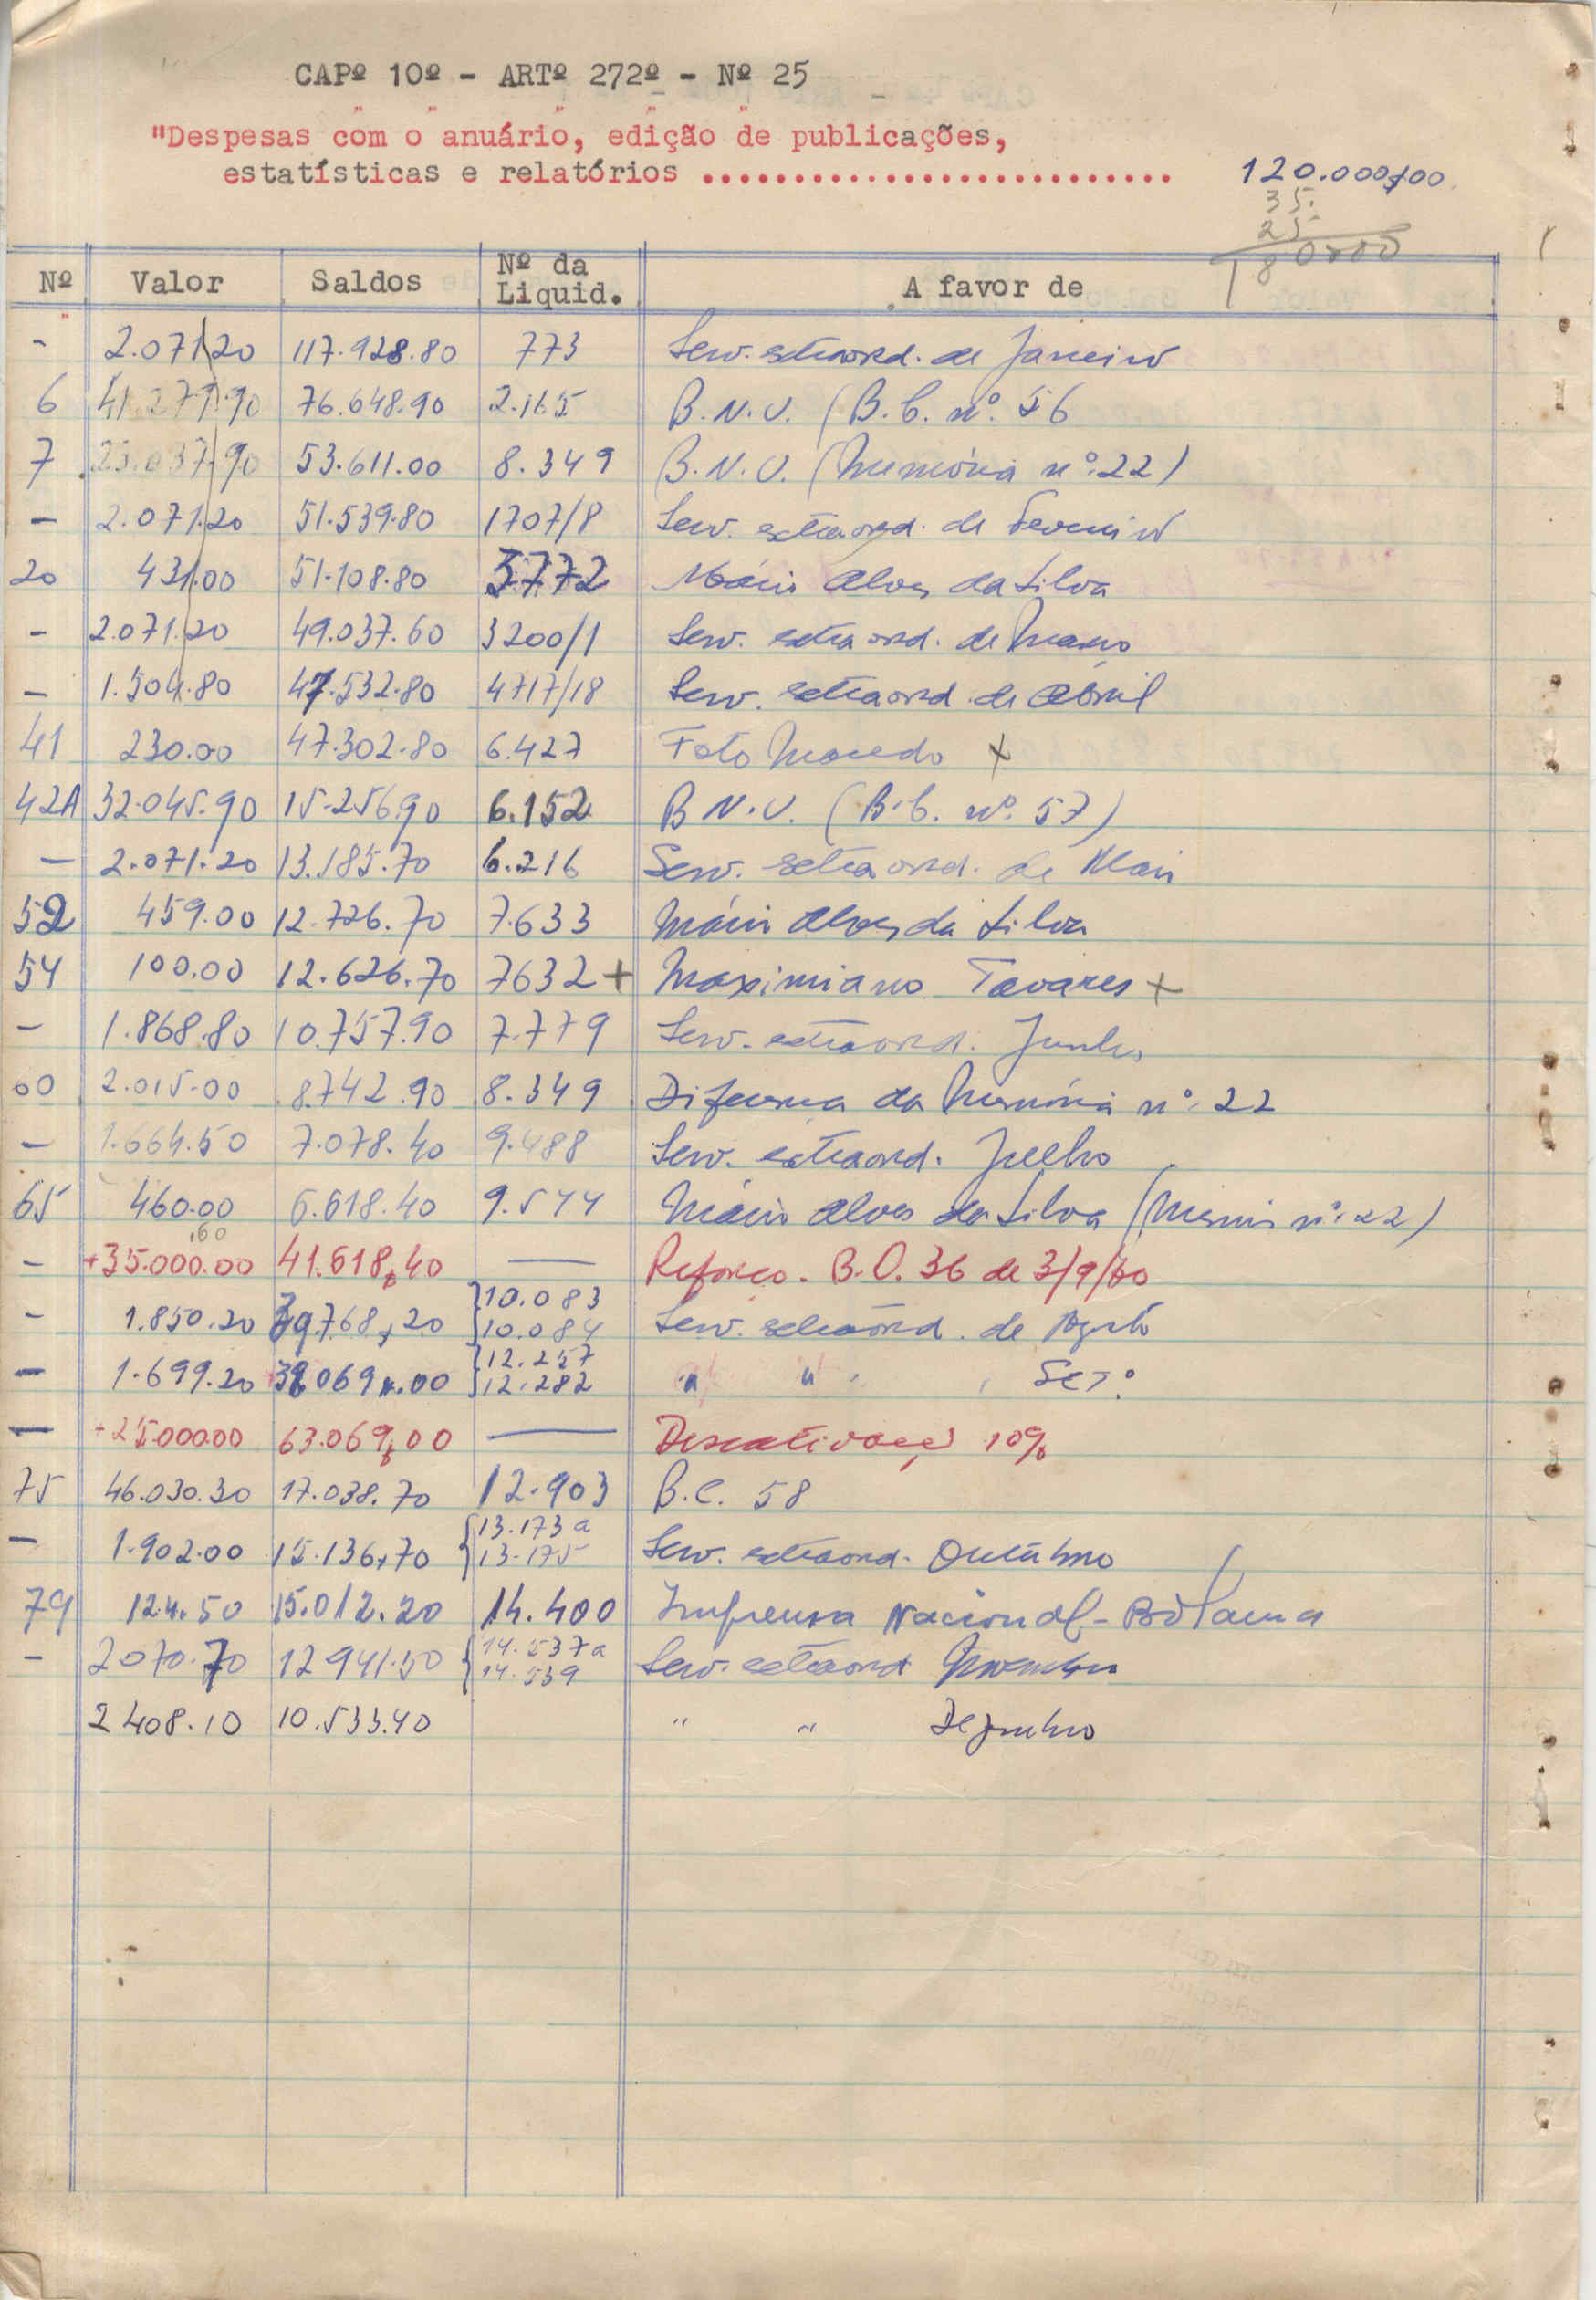 CAPº 10º - ARTº 272º - Nº 25
"Despesas com o anuário, edição de publicações,
estatísticas e relatórios .......................... 120.000$00
35.
25.
180000
Nº Valor Saldos Nº da Liquid. A favor de
- 2.071.20 117.928.80 773 Serv. extraord. de Janeiro
6 41.279.90 76.648.90 2.165 B.N.U. (B.C. nº. 56
7 23.037.90 53.611.00 8.349 B.N.U. (Memória nº. 22)
- 2.071.20 51.539.80 1707/8 Serv. extraord. de Fevereiro
20 431.00 51.108.80 5772 Mário Alves da Silva
- 2.071.20 49.037.60 3200/1 Serv. extraord. de Março
- 1.504.80 47.532.80 4717/18 Serv. extraord. de Abril
41 230.00 47.302.80 6.427 Foto Macedo x
42A 32.045.90 15.256.90 6.152 B N.U. (B.C. nº. 57)
- 2.071.20 13.185.70 6.216 Serv. extraord. de Maio
52 459.00 12.726.70 7.633 Mário Alves da Silva
54 100.00 12.626.70 7632 + Maximiano Tavares x
- 1.868.80 10.757.90 7.779 Serv. extraord. Junho
60 2.015.00 8.742.90 8.349 Diferença da Memória nº. 22
- 1.664.50 7.078.40 9.488 Serv. extraord. Julho
65 460.00 6.618.40 9.544 Mário Alves da Silva (Memória nº. 22)
,60
- +35.000.00 41.618$40 — Reforço. B.O. 36 de 3/9/60
- 1.850.20 39.768,20 10.083 10.084 Serv. extraord. de Agosto
- 1.699.20 38.069.00 12.257 12.282 " " Setº
- +25.000.00 63.069$00 — Desativação 10%
75 46.030.30 17.038.70 12.903 B.C. 58
- 1.902.00 15.136,70 13.173 a 13.175 Serv. extraord. Outubro
79 124.50 15.012.20 14.400 Imprensa Nacional - Bolama
- 2070.70 12941.50 14.537 a 14.539 Serv. extraord Novembro
2408.10 10.533.40 " " Dezembro